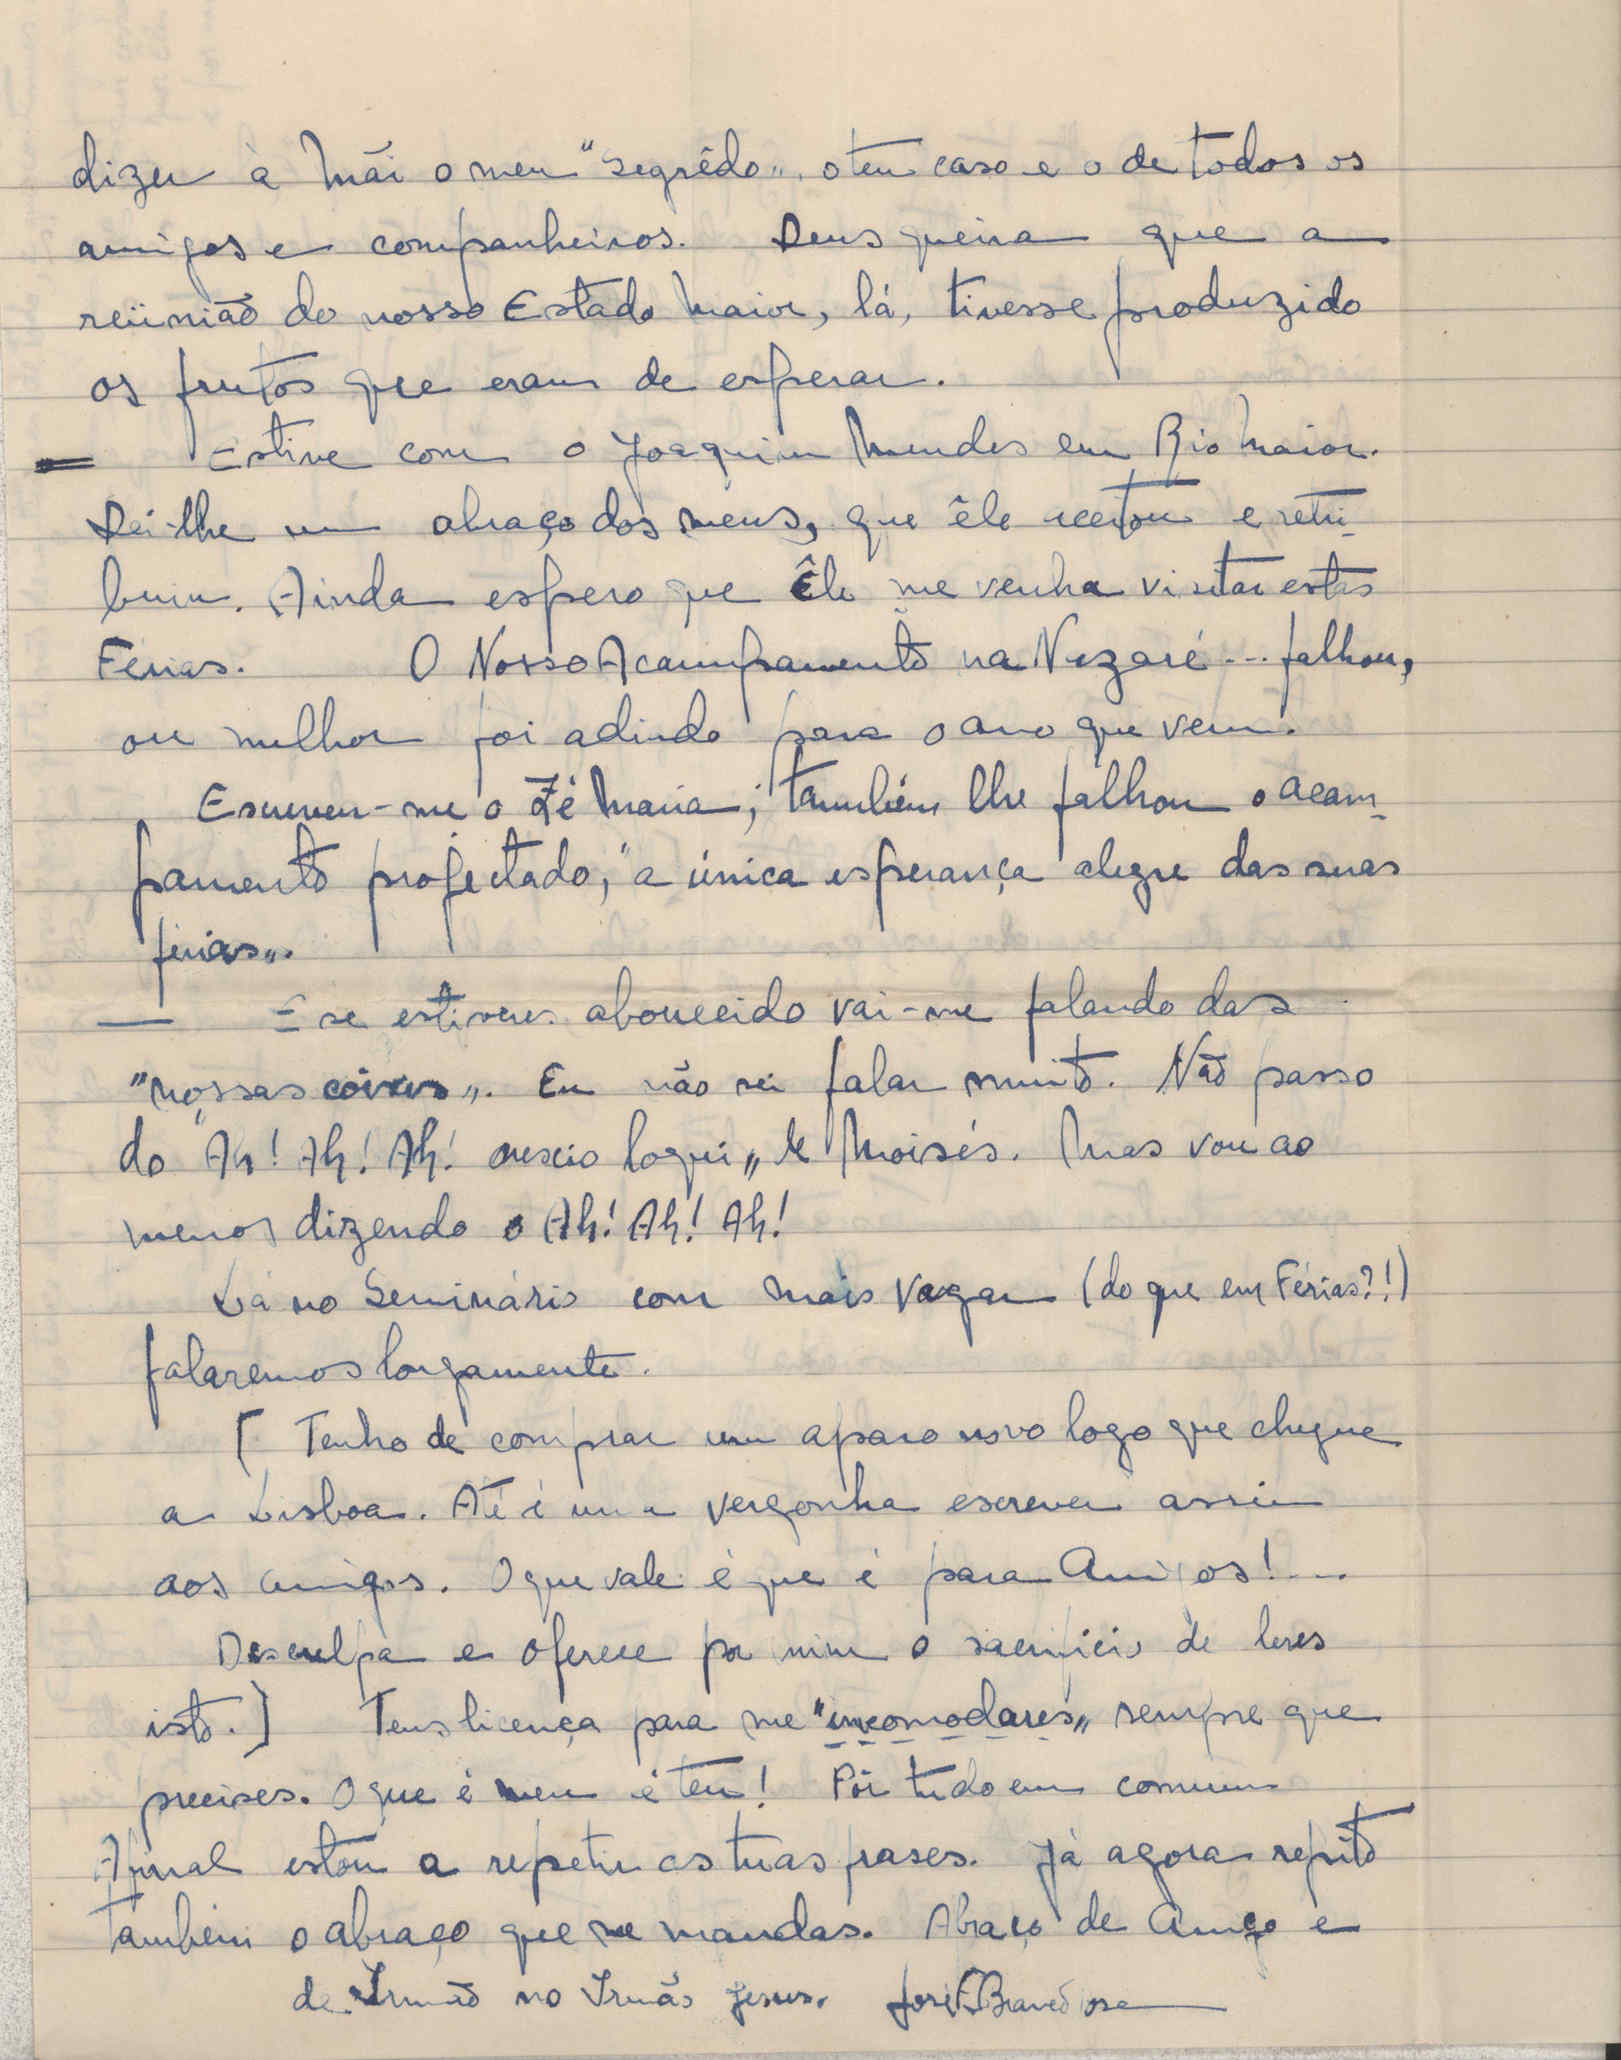 dizer à Mãi o meu "segrêdo„, o teu caso e o de todos os
amigos e companheiros. Deus queira que a
reünião do nosso Estado Maior, lá, tivesse produzido
os frutos que eram de esperar.
— Estive com o Joaquim Mendes em Rio Maior.
Dei-lhe um abraço dos meus, que êle aceitou e retri-
buiu. Ainda espero que Êle me venha visitar estas
Férias. O Nosso Acampamento na Nazaré... falhou,
ou melhor foi adiado para o ano que vem.
Escreveu-me o Zé Maria; também lhe falhou o acam-
pamento projectado, "a única esperança alegre das suas
férias„.
— E se estiveres aborrecido vai-me falando das
"nossas coisas„. Eu não sei falar muito. Não passo
do "Ah! Ah! Ah! nescio loqui„ de Moisés. Mas vou ao
menos dizendo o Ah! Ah! Ah!
Lá no Seminário com mais vagar (do que em Férias?!)
falaremos longamente.
[ Tenho de comprar um aparo novo logo que chegue
a Lisboa. Até é uma vergonha escrever assim
aos amigos. O que vale é que é para Amigos!...
Desculpa e oferece por mim o sacrifício de leres
isto.] Tens licença para me "incomodares„ sempre que
precises. O que é meu é teu! Pôr tudo em comum
Afinal estou a repetir as tuas frases. Já agora repito
também o abraço que me mandas. Abraço de Amigo e
de Irmão no Irmão Jesus. José